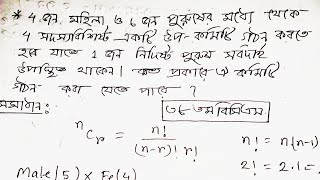 * 4 জন মহিলা ও 6 জন পুরুষের মধ্যে থেকে
4 সদস্যবিশিষ্ট একটি উপ-কমিটি গঠন করতে
হবে যাতে 1 জন নির্দিষ্ট পুরুষ সর্বদাই
উপস্থিত থাকেন। কত প্রকারে ঐ কমিটি
গঠন করা যেতে পারে ?
সমাধান: ৩৮ তম বিসিএস
nCr = n! / (n-r)! r! n! = n(n-1)
2! = 2.1 =
Male (5) × Fe(4)